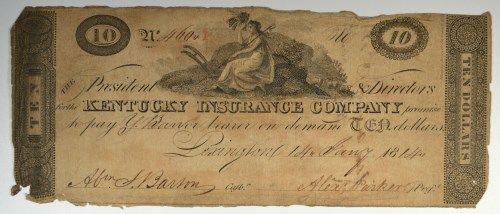 10 No. 460 10
TEN
THE President & Directors
for the KENTUCKY INSURANCE COMPANY promise
to pay bearer on demand TEN dollars
Lexington 14 Jany 1814
Abm. S. Barton Cashr. Alexr. Parker Presn.
TEN DOLLARS